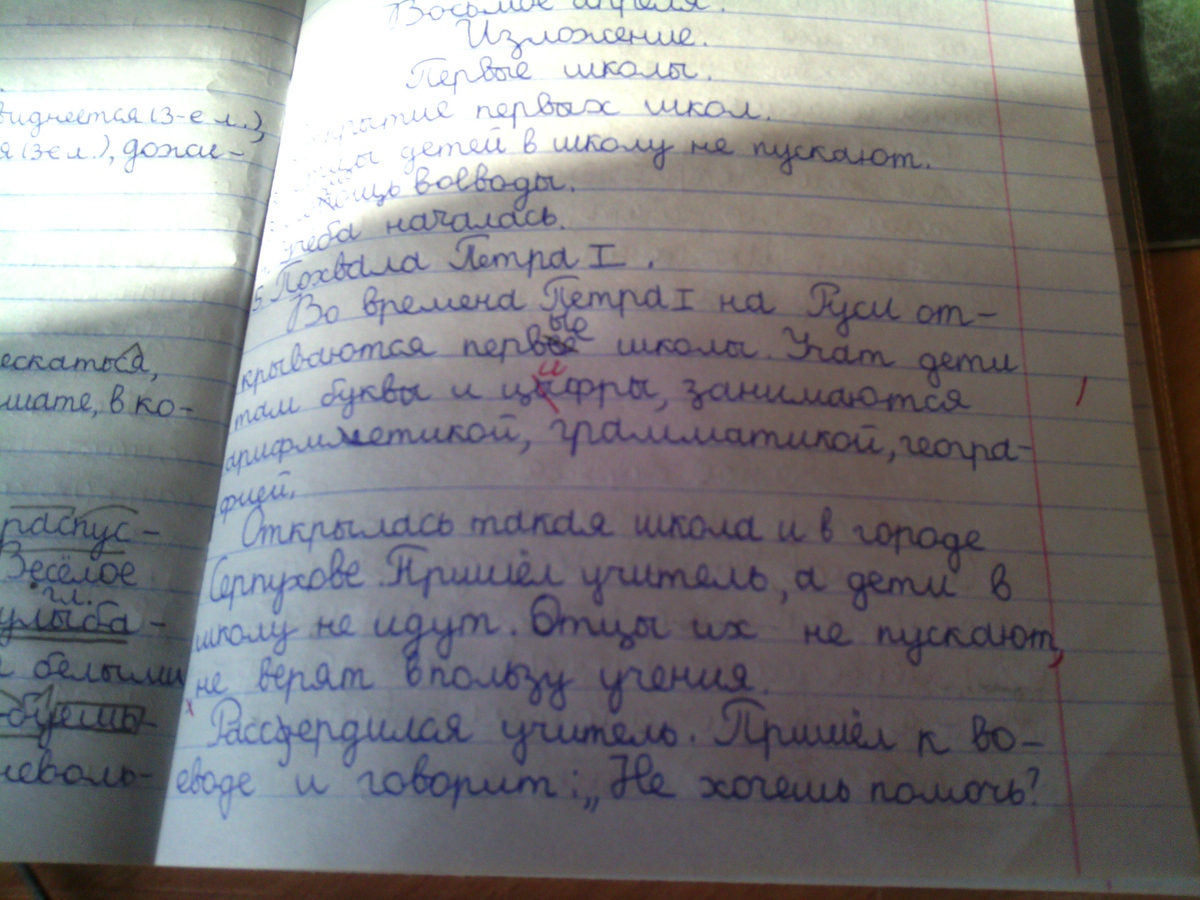 виднеется (3-е л.),
я (3е л.), дожи-
ескаться,
шате, в ко-
распус-
Весёлое
гл.
улыба-
белыми
буешь-
неволь-
Восьмое апреля.
Изложение.
Первые школы.
крытие первых школ.
цы детей в школу не пускают.
мощь воеводы.
учеба началась.
5. Похвала Петра I.
Во времена Петра I на Руси от-
крываются первые школы. Учат дети
там буквы и цифры, занимаются
арифметикой, грамматикой, геогра-
фией.
Открылась такая школа и в городе
Серпухове. Пришёл учитель, а дети в
школу не идут. Отцы их не пускают,
не верят в пользу учения.
Рассердился учитель. Пришёл к во-
еводе и говорит: „Не хочешь помочь?